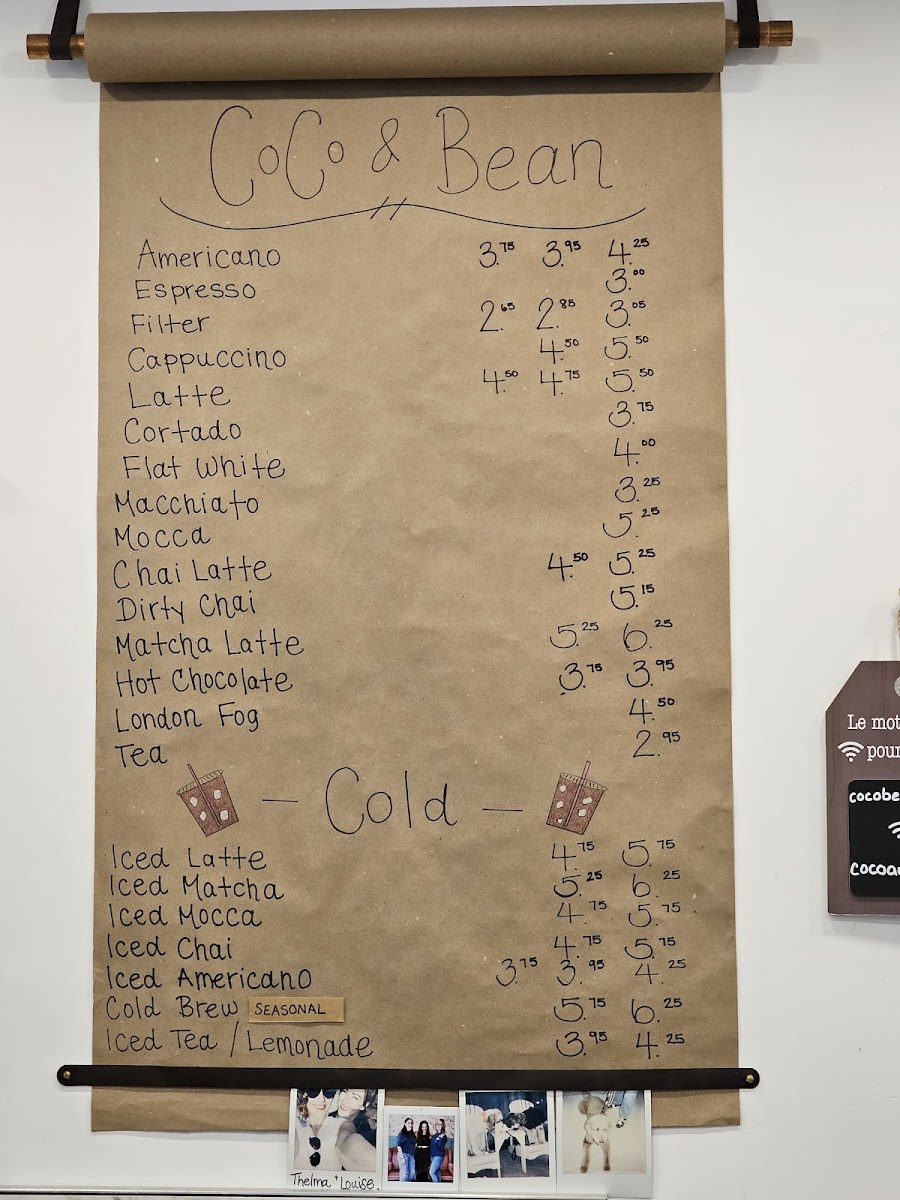 CoCo & Bean
Americano 3.75 3.95 4.25
Espresso 3.00
Filter 2.65 2.85 3.05
Cappuccino 4.50 5.50
Latte 4.50 4.75 5.50
Cortado 3.75
Flat White 4.00
Macchiato 3.25
Mocca 5.25
Chai Latte 4.50 5.25
Dirty Chai 5.15
Matcha Latte 5.25 6.25
Hot Chocolate 3.75 3.95
London Fog 4.50
Tea 2.95
- Cold -
Iced Latte 4.75 5.75
Iced Matcha 5.25 6.25
Iced Mocca 4.75 5.75
Iced Chai 4.75 5.75
Iced Americano 3.75 3.95 4.25
Cold Brew SEASONAL 5.75 6.25
Iced Tea / Lemonade 3.95 4.25
Thelma + Louise.
Le mot
pour
cocobe